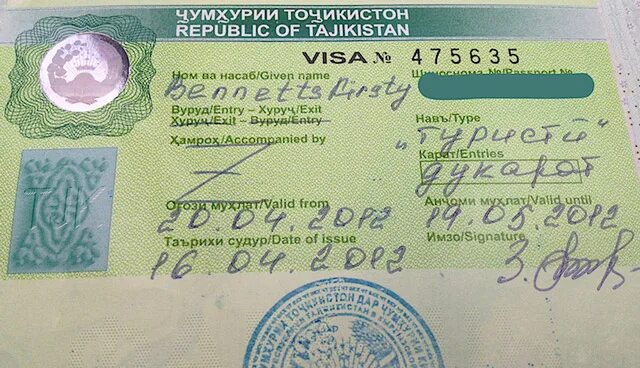 ҶУМҲУРИИ ТОҶИКИСТОН
REPUBLIC OF TAJIKISTAN
VISA № 475635
Ном ва насаб/Given name
Шиноснома №/Passport №
Bennetts Kirsty
Вуруд/Entry – Хуруҷ/Exit
Хуруҷ/Exit – Вуруд/Entry
Навъ/Type
Ҳамроҳ/Accompanied by
"туристӣ"
Карат/Entries
дукарат
Оғози муҳлат/Valid from
Анҷоми муҳлат/Valid until
20.04.2012
19.05.2012
Таърихи судур/Date of issue
Имзо/Signature
16.04.2012
ТОҶИКИСТОН ДАР ҶУМҲУРИИ